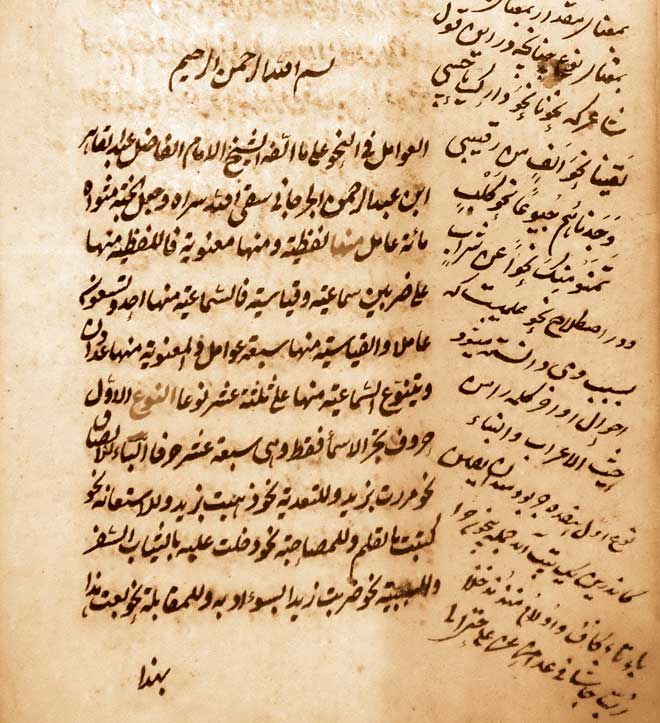 بسم الله الرحمن الرحيم
العوامل في النحو على ما الفه الشيخ الامام الفاضل عبد القاهر
ابن عبد الرحمن الجرجاني سقى الله ثراه وجعل الجنة مثواه
مائة عامل منها لفظية ومنها معنوية فاللفظية منها
على ضربين سماعية وقياسية فالسماعية منها احد وتسعون
عاملا والقياسية منها سبعة عوامل والمعنوية منها عددان
ويتنوع السماعية منها على ثلثة عشر نوعا النوع الاول
حروف تجر الاسماء فقط وهي سبعة عشر حرفا الباء للالصاق
نحو مررت بزيد وللتعدية نحو ذهبت بزيد وللاستعانة نحو
كتبت بالقلم وللمصاحبة نحو دخلت عليه بثياب السفر
وللسببية نحو ضربت زيدا بسوء ادبه وللمقابلة نحو بعت هذا
بهذا
بمعنای مقدار بمعنای
بمعنای نوع چنانکه در این قول
شاعر که نحونا نحو دارك يا حبيبي
لقينا نحو الف من رقيب
وجدناهم جيوعا نحو كلب
تمنوا منك نحوا من شراب
ودر اصطلاح نحو علمیست که
بسبب وی دانسته میشود
احوال اواخر کلمه از
حيث الاعراب والبناء
نوع اول هفده حرف جر بود
باء وتاء وكاف ولام واو منذ مذ خلا
رب حاشا من عدا في عن على حتى الى